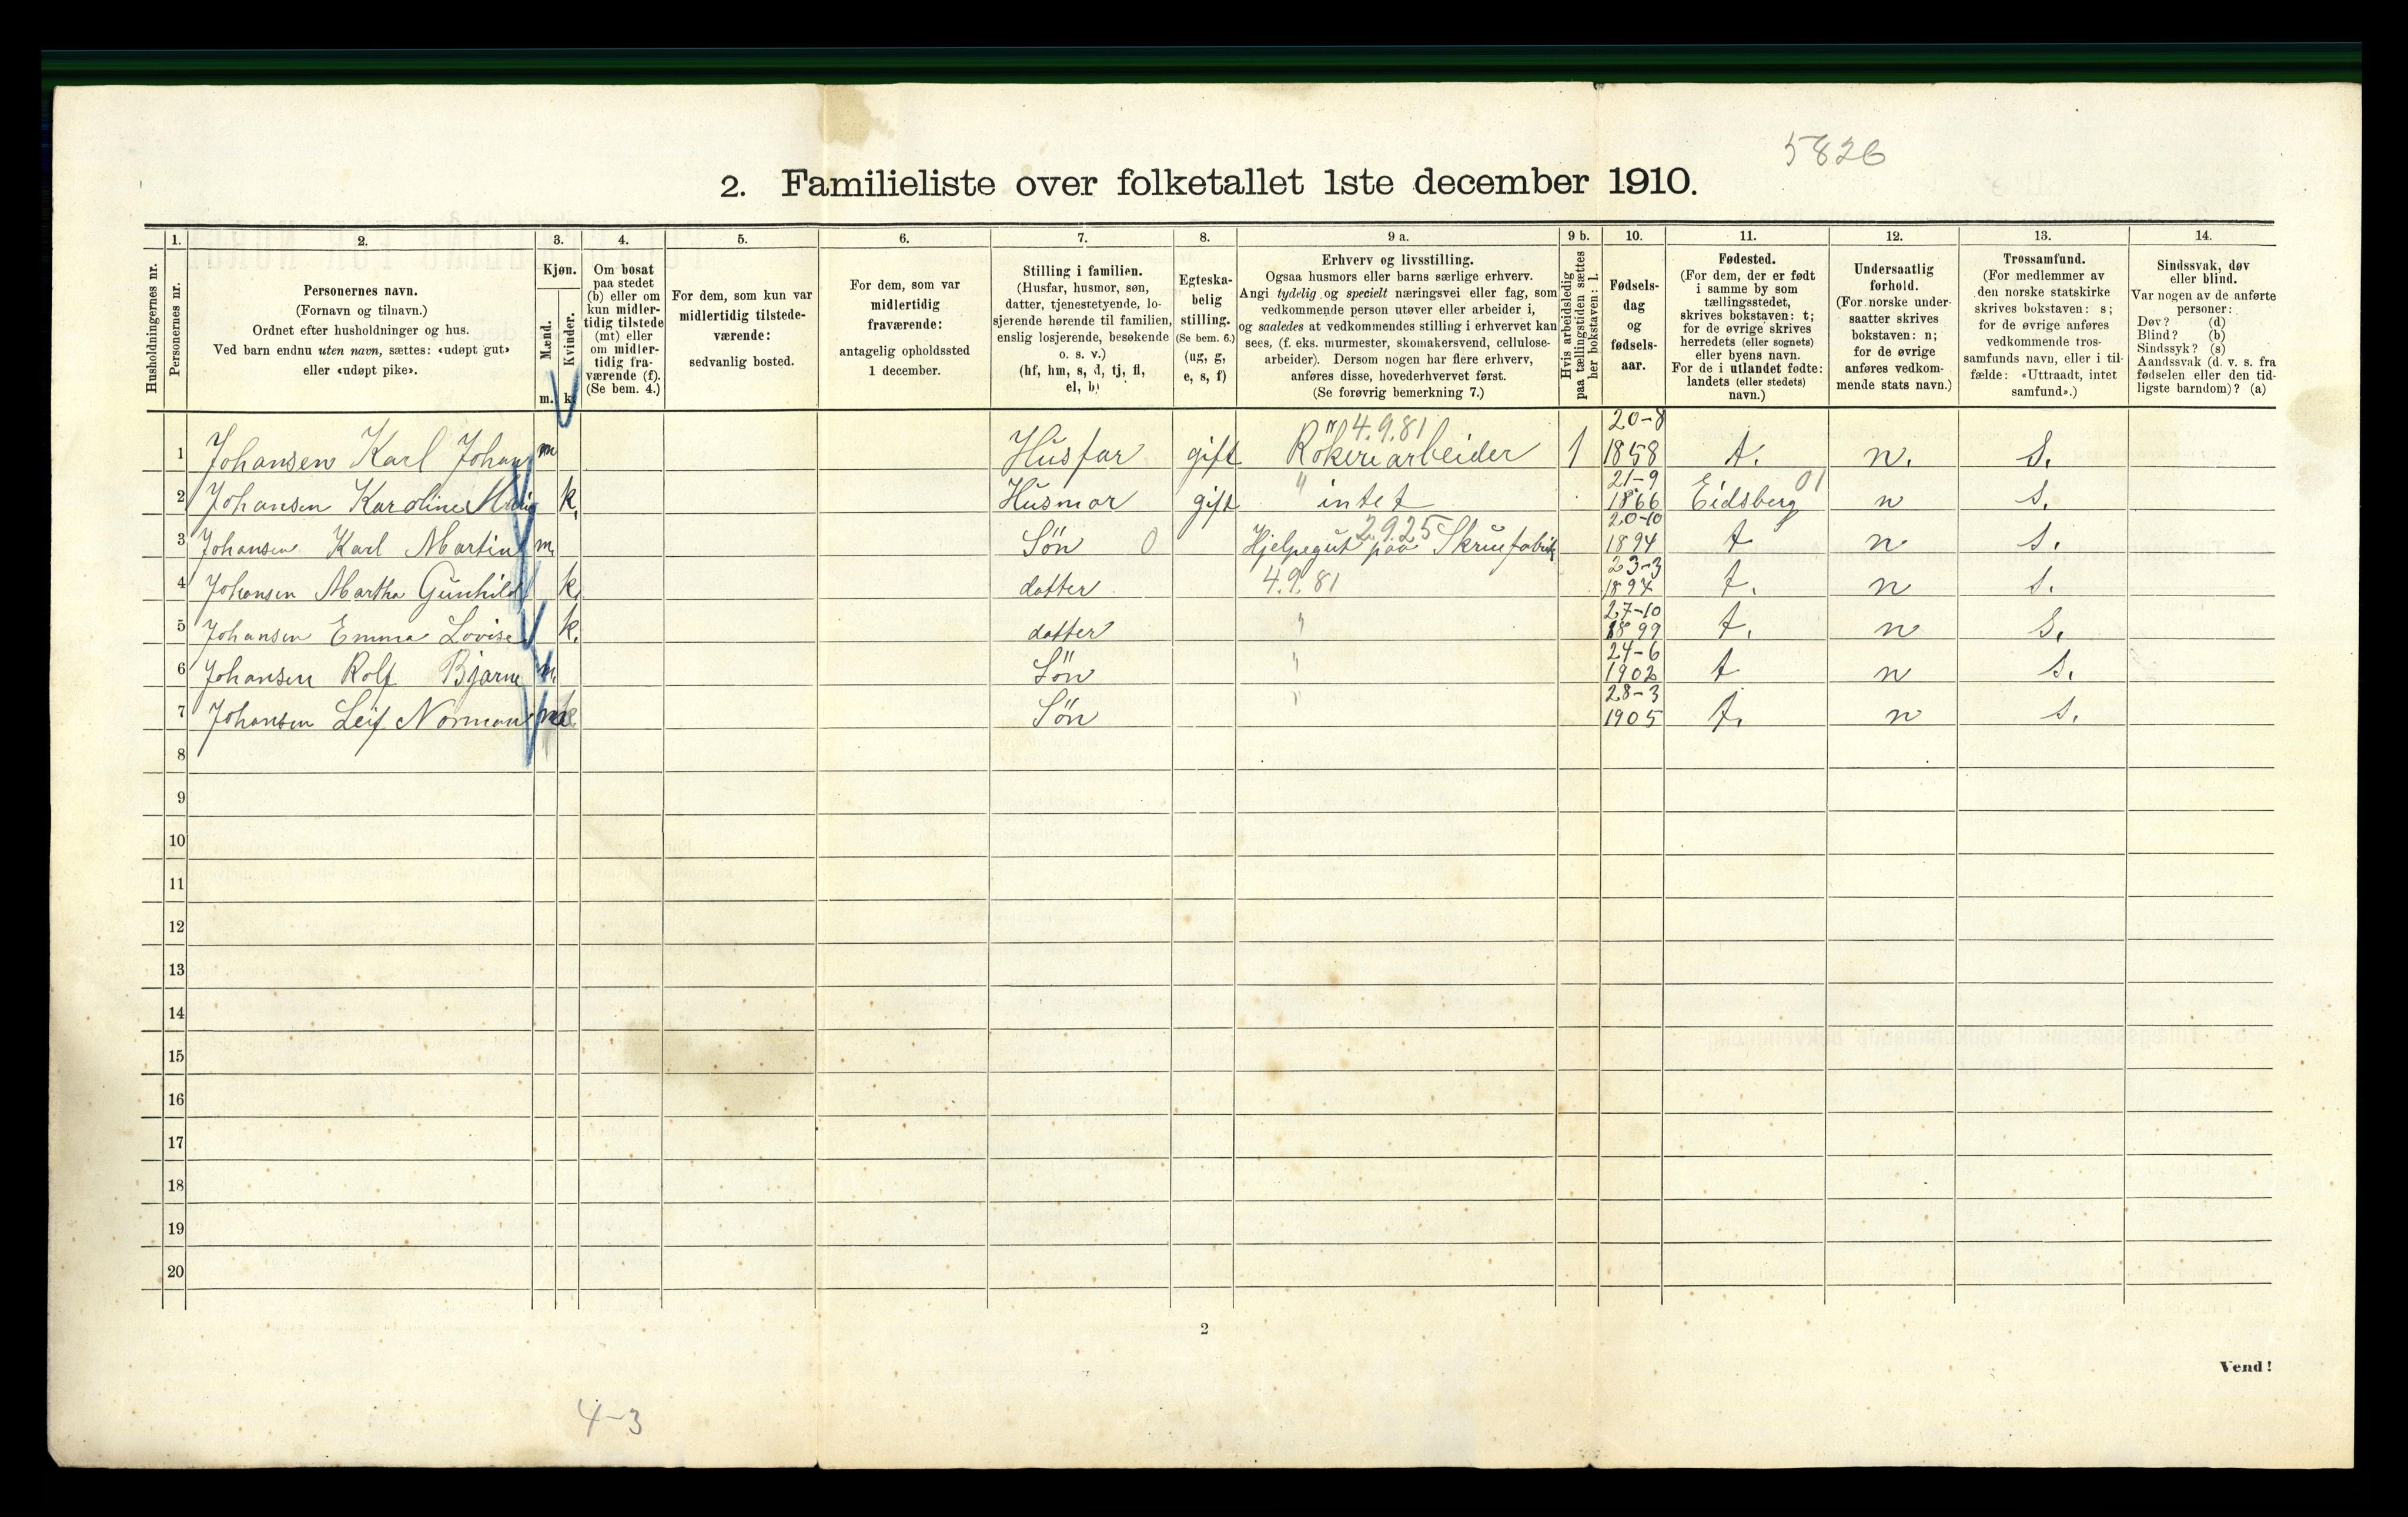 5826
2. Familieliste over folketallet 1ste december 1910.
Husholdningernes nr.
1. Personernes nr.
2. Personernes navn.
(Fornavn og tilnavn.)
Ordnet efter husholdninger og hus.
Ved barn endnu uten navn, sættes: «udøpt gut»
eller «udøpt pike».
3. Kjøn.
Mænd. Kvinder.
m. k.
4. Om bosat
paa stedet
(b) eller om
kun midler-
tidig tilstede
(mt) eller
om midler-
tidig fra-
værende (f).
(Se bem. 4.)
5. For dem, som kun var
midlertidig tilstede-
værende:
sedvanlig bosted.
6. For dem, som var
midlertidig
fraværende:
antagelig opholdssted
1 december.
7. Stilling i familien.
(Husfar, husmor, søn,
datter, tjenestetyende, lo-
sjerende hørende til familien,
enslig losjerende, besøkende
o. s. v.)
(hf, hm, s, d, tj, fl,
el, b)
8. Egteska-
belig
stilling.
(Se bem. 6.)
(ug, g,
e, s, f)
9 a. Erhverv og livsstilling.
Ogsaa husmors eller barns særlige erhverv.
Angi tydelig og specielt næringsvei eller fag, som
vedkommende person utøver eller arbeider i,
og saaledes at vedkommendes stilling i erhvervet kan
sees, (f. eks. murmester, skomakersvend, cellulose-
arbeider). Dersom nogen har flere erhverv,
anføres disse, hovederhvervet først.
(Se forøvrig bemerkning 7.)
9 b. Hvis arbeidsledig
paa tællingstiden sættes
her bokstaven: l.
10. Fødsels-
dag
og
fødsels-
aar.
11. Fødested.
(For dem, der er født
i samme by som
tællingsstedet,
skrives bokstaven: t;
for de øvrige skrives
herredets (eller sognets)
eller byens navn.
For de i utlandet fødte:
landets (eller stedets)
navn.)
12. Undersaatlig
forhold.
(For norske under-
saatter skrives
bokstaven: n;
for de øvrige
anføres vedkom-
mende stats navn.)
13. Trossamfund.
(For medlemmer av
den norske statskirke
skrives bokstaven: s;
for de øvrige anføres
vedkommende tros-
samfunds navn, eller i til-
fælde: «Uttraadt, intet
samfund».)
14. Sindssvak, døv
eller blind.
Var nogen av de anførte
personer:
Døv? (d)
Blind? (b)
Sindssyk? (s)
Aandssvak (d. v. s. fra
fødselen eller den tid-
ligste barndom)? (a)
4.9.81 20-8
1 Johansen Karl Johan m Husfar gift Rökeriarbeider 1 1858 t. n. s.
21-9 01
2 Johansen Karoline k. Husmor gift " intet 1866 Eidsberg n s.
2.9.25 20-10
3 Johansen Karl Martin m. Sön 0 Hjelpegut paa Skruefabrik 1894 t n s.
23-3
4 Johansen Martha Gunhild k. datter 4.9.81 1897 t. n s.
27-10
5 Johansen Emma Lovise k. datter " 1899 t. n s.
24-6
6 Johansen Rolf Bjarne m. Sön " 1902 t n s.
28-3
7 Johansen Leif Norman m Sön " 1905 t. n s.
8
9
10
11
12
13
14
15
16
17
18
19
20
2
Vend!
4-3